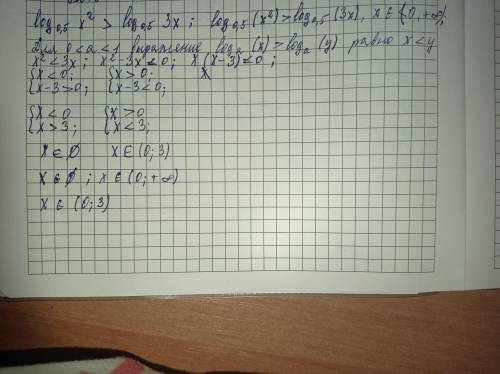 log₀,₅ x² > log₀,₅ 3x ; log₀,₅ (x²) > log₀,₅ (3x), x ∈ (0, +∞);
Для 0 < a < 1 выражение logₐ (x) > logₐ (y) равно x < y
x² < 3x ; x² - 3x < 0 ; x (x - 3) < 0 ;
{x < 0; {x > 0; X
{x - 3 > 0; {x - 3 < 0;
{x < 0 {x > 0
{x > 3; {x < 3;
x ∈ ∅ x ∈ (0; 3)
x ∈ ∅ ; x ∈ (0; +∞)
x ∈ (0; 3)